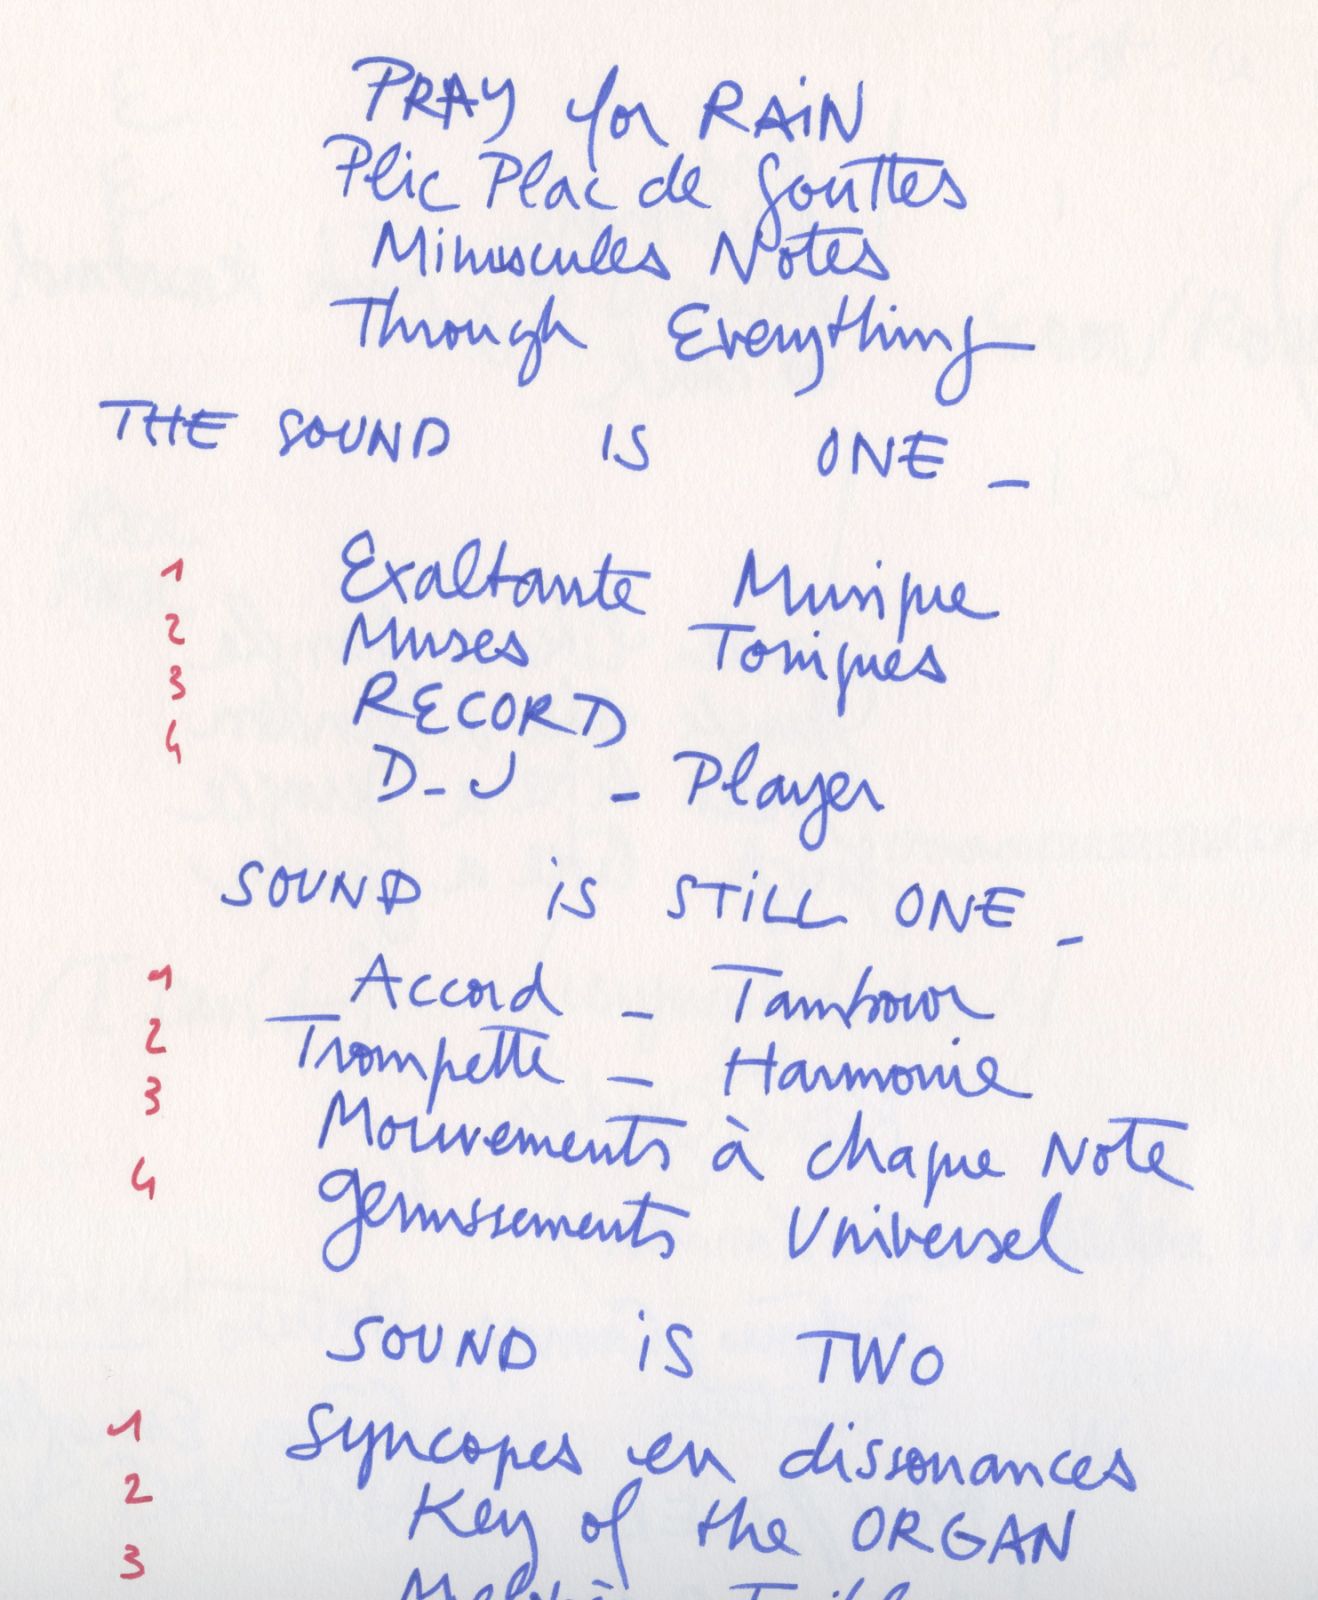 PRAY for RAiN
Plic Plac de gouttes
Minuscules Notes
Through Everything
THE SOUND IS ONE _
1 Exaltante Musique
2 Muses Toniques
3 RECORD
4 D_J _ Player
SOUND iS STiLL ONE _
1 Accord _ Tambour
2 Trompette _ Harmonie
3 Mouvements à chaque Note
4 gemissements Universel
SOUND iS TWO
1 Syncopes en dissonances
2 Key of the ORGAN
3